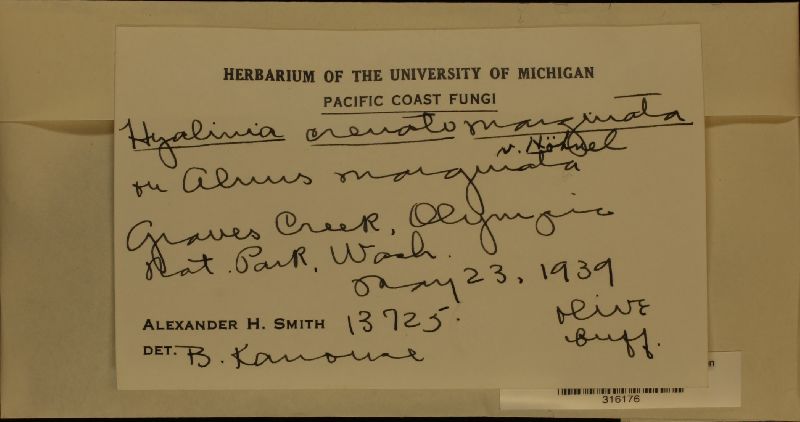 HERBARIUM OF THE UNIVERSITY OF MICHIGAN
PACIFIC COAST FUNGI
Hyalinia crenato marginata
v. Höhnel
on Alnus marginata
Graves Creek, Olympic
Nat. Park, Wash.
May 23, 1939
ALEXANDER H. SMITH 13725.
olive
buff.
DET. B. Kanouse
316176